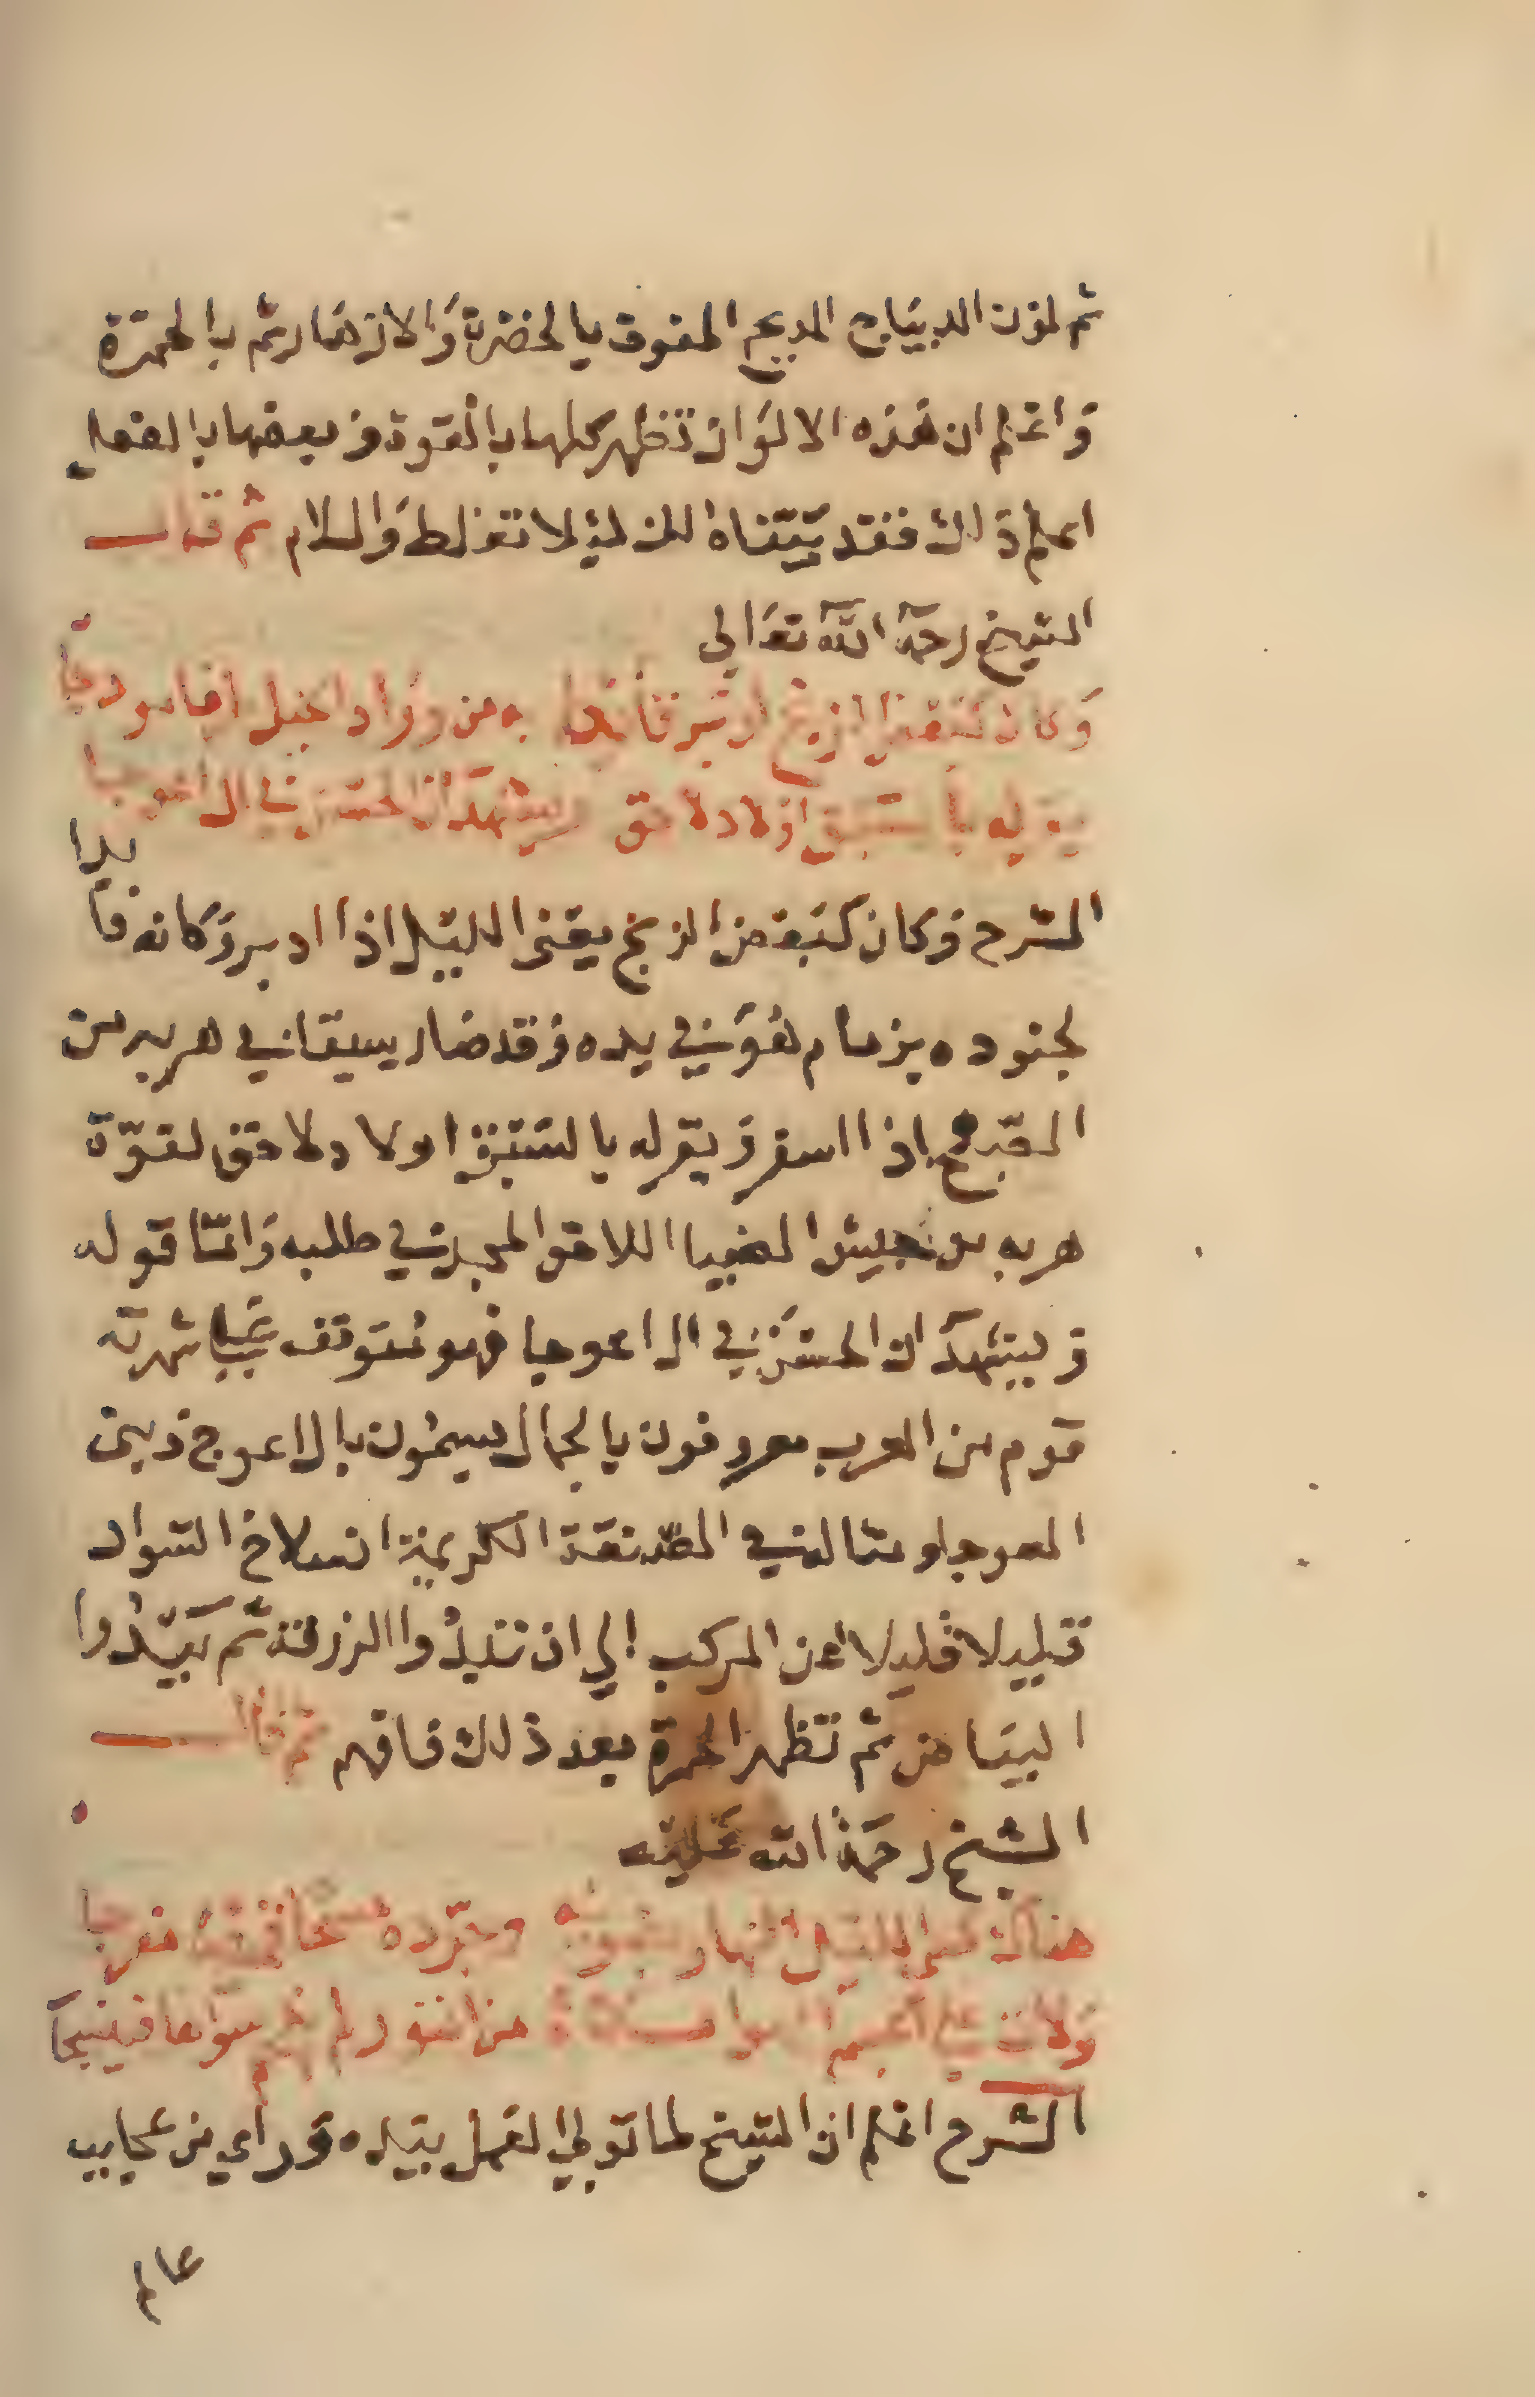 ثم لون الديباج المدبج المفوف بالخضرة والازهار ثم بالحمرة
واعلم ان هذه الالوان تظهر كلها بالقوة وبعضها بالفعل
اعلم ذلك فقد بيّناه لك ليلا تغلط والسلام ثم قال
الشيخ رحمه الله تعالى
وكان كبعض الزنج ادبر من وراد الخيل
يقر له بالسبق اولاد لاحق ويشهد ان الحسن في ال اعوجا
الشرح وكان كبعض الزنج يعني الليل اذا ادبر وكانه قايدا
لجنوده بزمام هو في يده وقد صار يسبقا في هربه من
الصبح اذا اسفر ويقر له بالسبق اولاد لاحق لقوّة
هربه من جيش الضيا اللاحق المجد في طلبه وامّا قوله
ويشهد ان الحسن في ال اعوجا فهو متوقف علي شهرة
قوم من العرب معروفون بالجمال يسمون بال اعوج وبين
العوجا ومثاله في الصنعة الكريمة انسلاخ السواد
قليلا قليلا عن المركب الي ان تبدوا الزرقة ثم يبدوا
البياض ثم تظهر الحمرة بعد ذلك فافهم ثم قال
الشيخ رحمة الله عليه
هناك الليل النهار وجرّده
ولم
الشرح اعلم ان الشيخ لما تولي العمل بيده وراي من عجايب
عالم